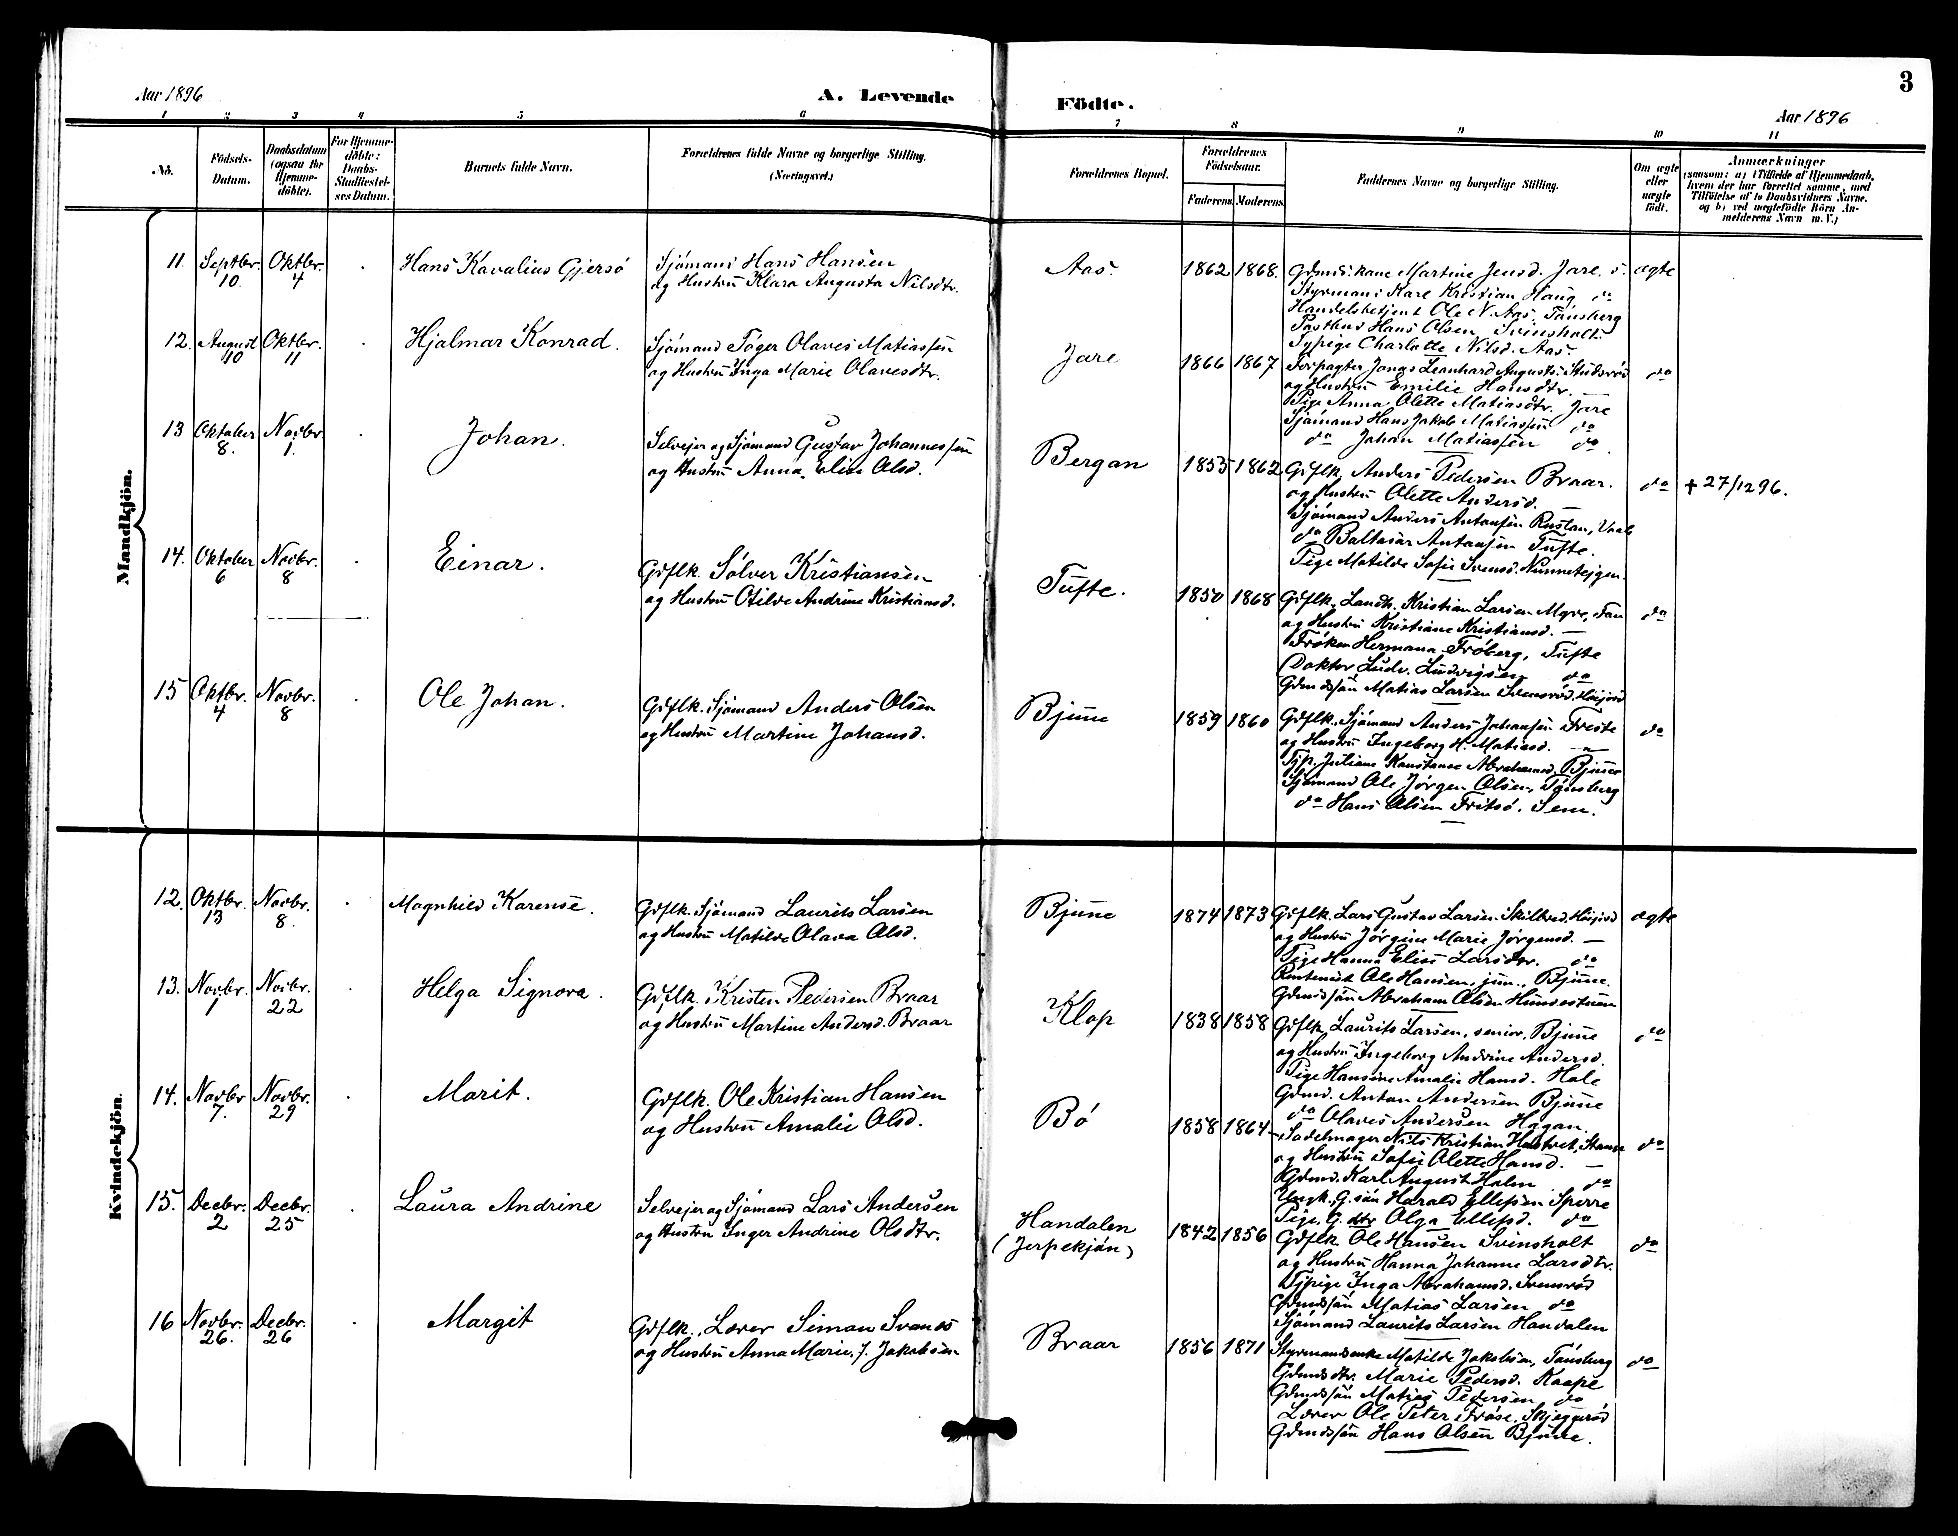 3
Aar 1896
A. Levende
Födte.
Aar 1896
1 2 3 4 5 6 7 8 9 10 11
No.
Födsels-
Datum.
Daabsdatum
(ogsaa for
Hjemme-
döbte).
For Hjemme-
döbte:
Daabs-
Stadfæstel-
ses Datum.
Barnets fulde Navn.
Forældrenes fulde Navne og borgerlige Stilling.
(Næringsvei.)
Forældrenes Bopæl.
Forældrenes
Födselsaar.
Faderens. Moderens.
Faddernes Navne og borgerlige Stilling.
Om ægte
eller
uægte
født.
Anmærkninger
(saasom: a) i Tilfælde af Hjemmedaab,
hvem der har forrettet samme, med
Tilföielse af to Daabsvidners Navne,
og b) ved uægtefödte Börn An-
melderens Navn m. V.)
Mandkjön.
11. Septbr. 10. Oktbr. 4 Hans Kavalius Gjersø
Sjömand Hans Hansen
og Hustru Klara Augusta Nilsdtr.
Aas. 1862 1868.
Gdmds.kone Martine Jensd. Jare.
Styrmand Kare Kristian Haug, do
Handelsbetjent Ole N. Aas. Tønsberg
Postbud Hans Olsen Svinsholt
Typige Charlotte Nilsd. Aas.
ægte
12. August 10 Oktbr. 11 Hjalmar Konrad.
Sjömand Töger Olaves Matiassen
og Hustru Inga Marie Olavesdtr.
Jare 1866 1867
Forpagter Jonas Leonhard Augusts:
og Hustru Emilie Hansdtr.
Pige Anna Olette Matiasdtr. Jare
Sjömand Hans Jakob Matiassen do
do Johan Matiassen do
do
13 Oktober 8. Novbr. 1. Johan.
Selvejer og Sjömand Gustav Johannessen
og Hustru Anna Elise Olsd.
Bergan 1855 1862
Gdflk. Anders Pedersen Braar.
og Hustru Olette Andersd.
Sjömand Anders Antonsen Rustan,
do Baltasar Antonsen Tufte.
Pige Matilde Sofie Svensd.
do + 27/12 96.
14. Oktober 6 Novbr. 8 Einar.
Gdflk. Sølver Kristiansen
og Hustru Otilde Andrine Kristiansd.
Tufte. 1850 1868
Gdflk. Landh. Kristian Larsen Myre,
og Hustru Kristiane Kristiansd. —
Frøken Hermana Frøberg, Tufte
Doktor Ludv. Ludvigsen do
Gdmdssön Matias Larsen Svensrød,
do
15 Oktbr. 4 Novbr. 8 Ole Johan.
Gdflk. Sjömand Anders Olsen
og Hustru Martine Johansd.
Bjune 1859 1860
Gdflk. Sjömand Anders Johansen Freste
og Hustru Ingeborg H. Matiasd.
Tjp. Juliane Konstanse Abrahamsd. Bjune
Sjömand Ole Jørgen Olsen, Tönsberg
do Hans Olsen Fritsö. Sem.
do
Kvindekjön.
12. Oktbr. 13 Novbr. 8. Magnhild Karense.
Gdflk. Sjömand Laurits Larsen
og Hustru Matilde Olava Olsd.
Bjune 1874 1873
Gdflk. Lars Gustav Larsen Skilbred,
og Hustru Jørgine Marie Jörgensd. —
Pige Hanna Elise Larsdtr. do
Rentenist Ole Hansen, jun., Bjune.
Gdmdssön Abraham Olsen
ægte
13. Novbr. 1 Novbr. 22 Helga Signora.
Gdflk. Kristen Pedersen Braar
og Hustru Martine Andersd. Braar
Klop 1838 1858
Gdflk. Laurits Larsen, senior, Bjune
og Hustru Ingeborg Andrine Andersd.
Pige Hansine Amalie Hansd. Hale
Gdmd. Anton Andersen Bjune
do Olaves Andersen Hagan.
do
14. Novbr 7. Novbr. 29 Marit.
Gdflk. Ole Kristian Hansen
og Hustru Amalie Olsd.
Bö 1858 1864
Sadelmager Nils Kristian
og Hustru Sofie Olette Hansd. —
Gdmd. Karl August Holm do
Ungk., G.sön Harald Ellefsen Sperre
Pige, G.dtr. Olga Ellefsd. do
do
15. Decbr. 2 Decbr. 25 Laura Andrine
Selvejer og Sjömand Lars Andersen
og Hustru Inger Andrine Olsdtr.
Handalen
(Jerpekjön) 1842 1856
Gdflk Ole Hansen Svinsholt
og Hustru Hanna Johanne Larsdtr.
Tjpige Inga Abrahamsd. Svensrød
Gdmdssön Matias Larsen do
Sjömand Laurits Larsen Handalen
do
16 Novbr. 26. Decbr. 26 Margit
Gdflk., Lærer Simon Svanes
og Hustru Anna Marie, f. Jakobsen
Braar 1856 1871
Styrmandsenke Matilde Jakobsen, Tönsberg
Gdmdsdtr. Marie Pedersd. Kaape
Gdmdssön Matias Pedersen do
Lærer Ole Peter Fröse, Skjeggerød
Gdmdssön Hans Olsen Bjune.
do